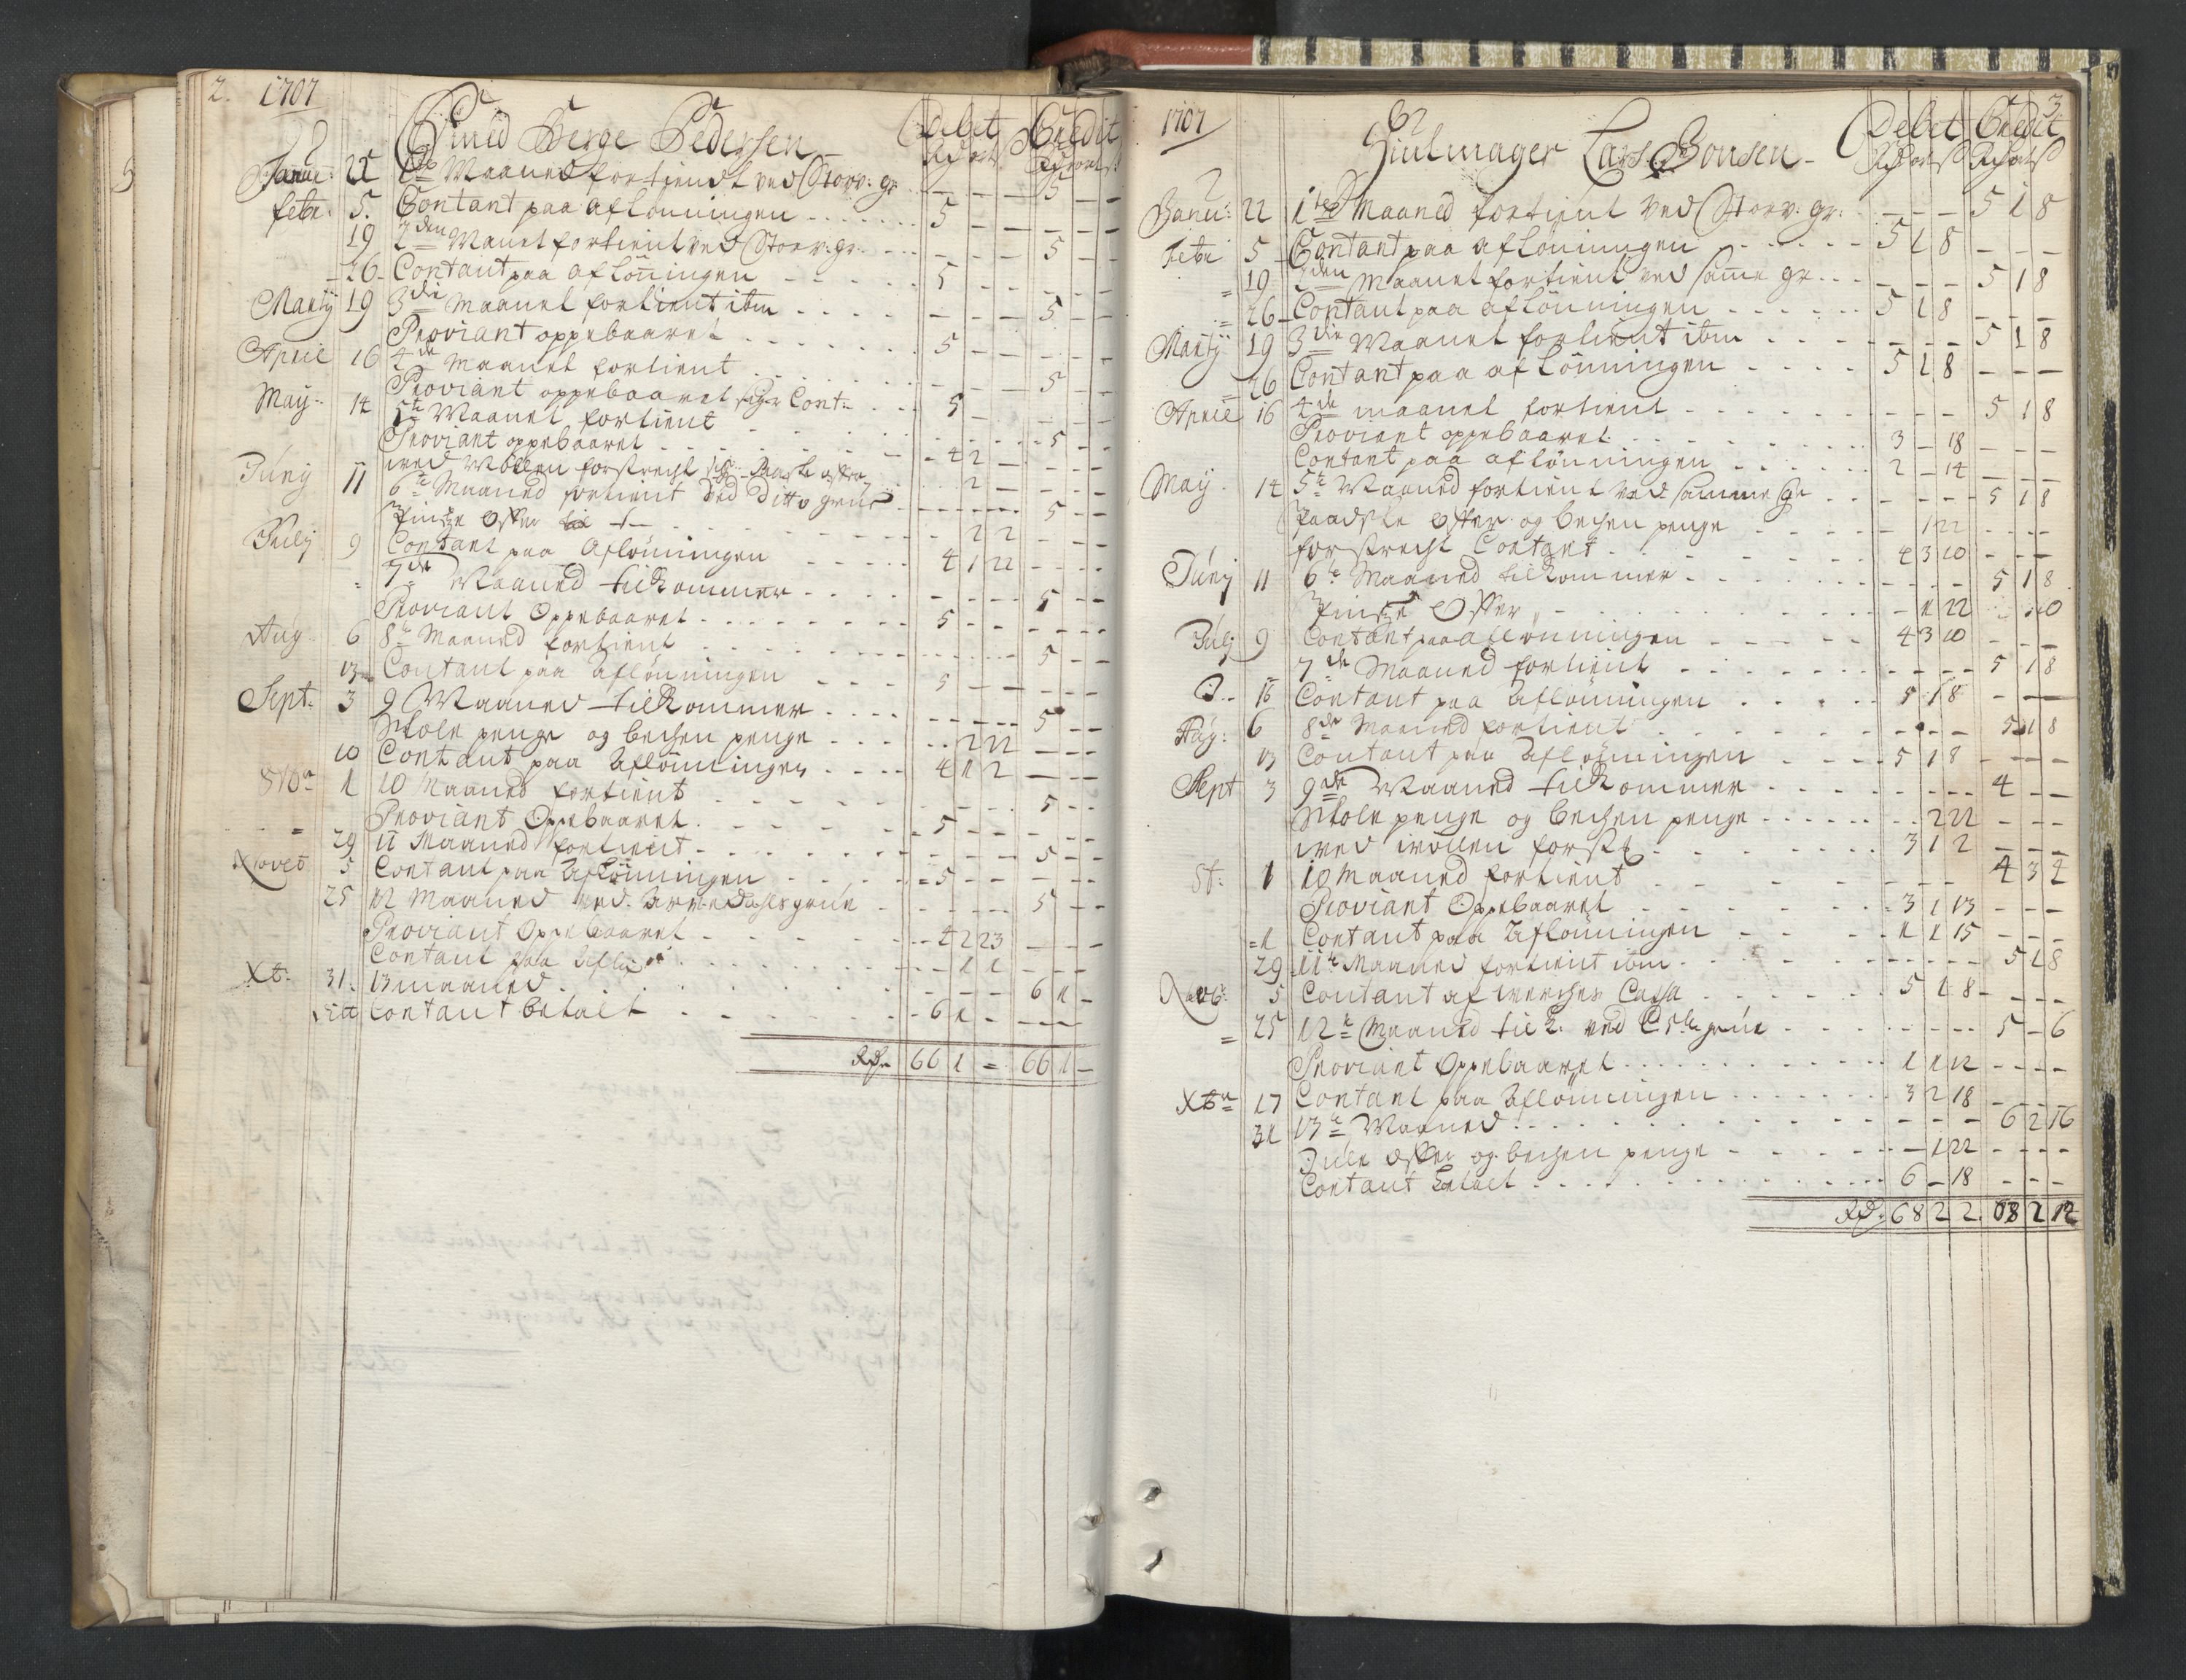 2. 1707
Smed Berge Pedersen Debet Credit
Janua: 22 1te Maaned fortiendt ved Storv: gr - - - 5 - -
febr. 5. Contant paa aflönningen 5 - - - - -
19 2den Maanet fortient ved Storv: gr: - - - 5 - -
26 Contant paa aflönningen 5 - - - - -
Martij 19 3die maanet fortient ibm - - - 5 - -
Proviant oppebaaret 5 - - - - -
April 16 4de maanet fortient - - - 5 - -
Proviant oppebaaret Cont: 5 - - - - -
May 14 5te Maanet fortient - - - 5 - -
Proviant oppebaaret 4 2 - - - -
ved Wollen forstrecht - 2 - - - -
Juny 11 6te Maaned fortient ved Ditto grue - - - 5 - -
Pintze Offer - 2 2 - - -
July 9 Contant paa Aflönningen 4 1 22 - - -
= 7de Maaned tilkommer - - - 5 - -
Proviant Oppebaaret 5 - - - - -
Aug 6 8te Maaned fortient - - - 5 - -
13 Contant paa aflönningen 5 - - - - -
Sept. 3 9 Maaned tilkommer - - - 5 - -
Skole penge og bechen penge - 2 22 - - -
10 Contant paa aflönningen 4 1 2 - - -
8tbr 1 10 Maaned fortient - - - 5 - -
Proviant Oppebaaret 5 - - - - -
= 29 11 Maaned fortient - - - 5 - -
Noveb 5 Contant paa Aflönningen 5 - - - - -
25 12 Maaned ved Arvedahls grue - - - 5 - -
Proviant Oppebaaret 4 2 23 - - -
Contant paa Aflö: - 1 1 - - -
Xb: 31. 13 maaned - - - 6 1 -
Contant betalt 6 1 - - - -
Rdr 66 1 = 66 1 -
1707 3
Hiulmager Lars Jonsen Debet Credit
Janu: 22 1te Maaned fortient ved Storv: gr: - - - 5 1 8
Febr 5 Contant paa aflönningen 5 1 8 - - -
= 19 2den Maanet fortient ved samme gr - - - 5 1 8
= 26 Contant paa aflönningen 5 1 8 - - -
Martij 19 3die Maanet fortient ibm - - - 5 1 8
= 26 Contant paa aflönningen 5 1 8 - - -
April 16 4de maanet fortient - - - 5 1 8
Proviant oppebaaret 3 - 18 - - -
Contant paa aflönningen 2 - 14 - - -
May 14 5te Maaned fortient ved samme gr - - - 5 1 8
Paadske Offer og bechen penge - 1 22 - - -
forstrecht Contant 4 3 10 - - -
Juny 11 6te Maaned tilkommer - - - 5 1 8
Pintze Offer - 1 22
July 9 Contant paa aflönningen 4 3 10 - - -
7de Maaned fortient - - - 5 1 8
D.. 16 Contant paa aflönningen 5 1 8 - - -
Aug: 6 8de Maaned fortient - - - 5 1 8
13 Contant paa Aflönningen 5 1 8 - - -
Sept 3 9de Maaned tilkommer - - - 4 - -
Skole penge og bechen penge - 2 22 - - -
ved wollen forst: 3 1 2 - - -
8t: 1 10 Maaned fortient - - - 4 3 4
Proviant Oppebaaret 3 1 13 - - -
= 1 Contant paa Aflönningen 1 1 15 - - -
29 11te Maaned fortient ibm - - - 5 1 8
Noveb: 5 Contant af werches Cassa 5 1 8 - - -
= 25 12te Maaned til k: ved grue - - - 5 - 6
Proviant Oppebaaret 1 1 12 - - -
Xbr 17 Contant paa Aflönningen 3 2 18 - - -
31 13te Maaned - - - 6 2 16
Jule offer og bechen penge - 1 22 - - -
Contant betalt 6 - 18 - - -
Rdr 68 2 2 68 2 12